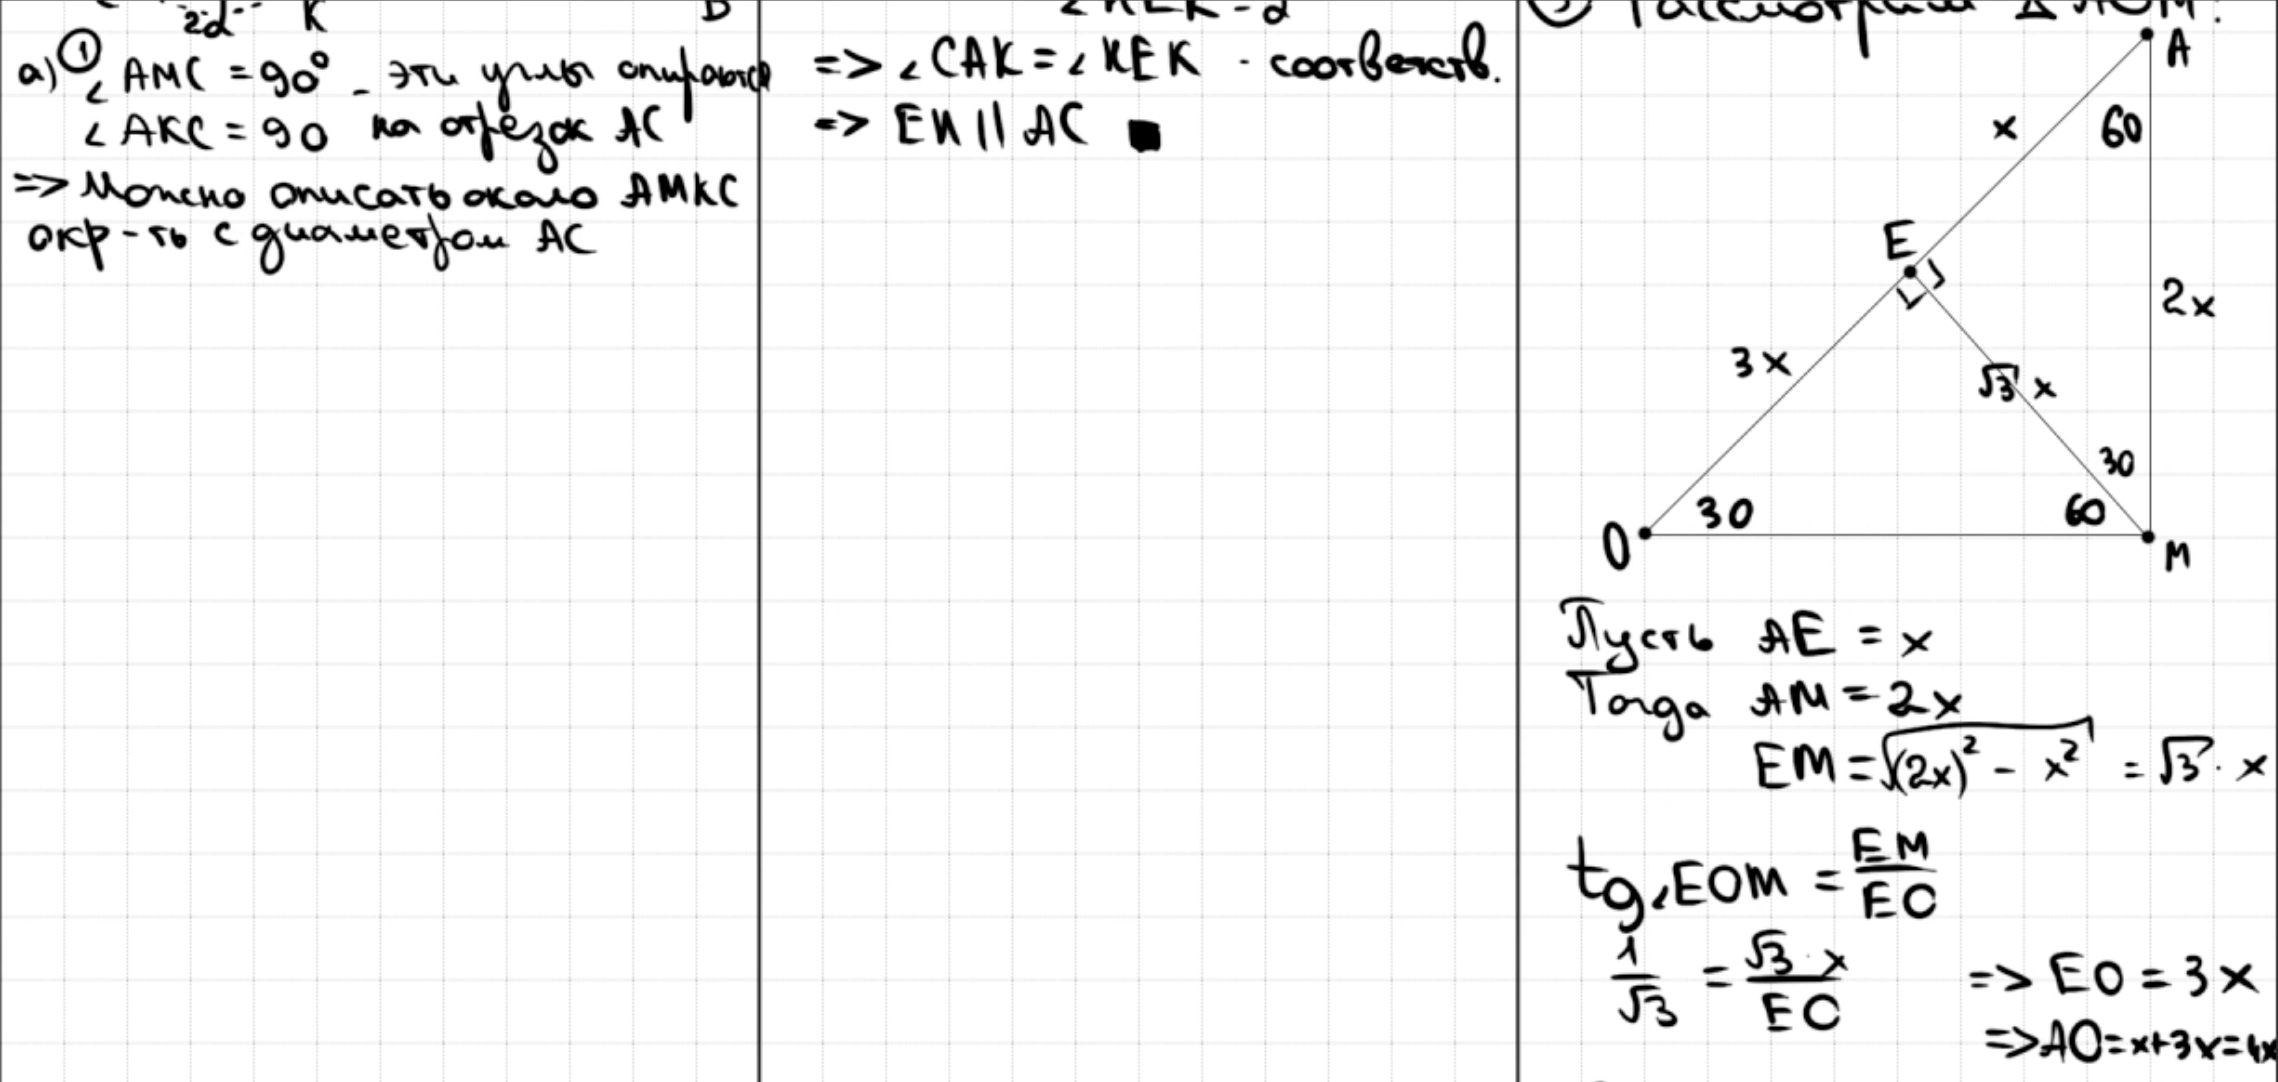 2α K
B
а) ①
∠AMC = 90° - эти углы опираются
∠AKC = 90 на отрезок AC
=> Можно описать около AMKC
окр-ть с диаметром AC
=> ∠CAK = ∠KEK - соответств.
=> EN || AC ■
Рассмотрим Δ AOM:
A
x
60
E
2x
3x
√3 x
30
O
30
60
M
Пусть AE = x
Тогда AM = 2x
EM = √((2x)² - x²) = √3 · x
tg∠EOM = EM/EO
1/√3 = √3·x/EO => EO = 3x
=> AO = x+3x = 4x